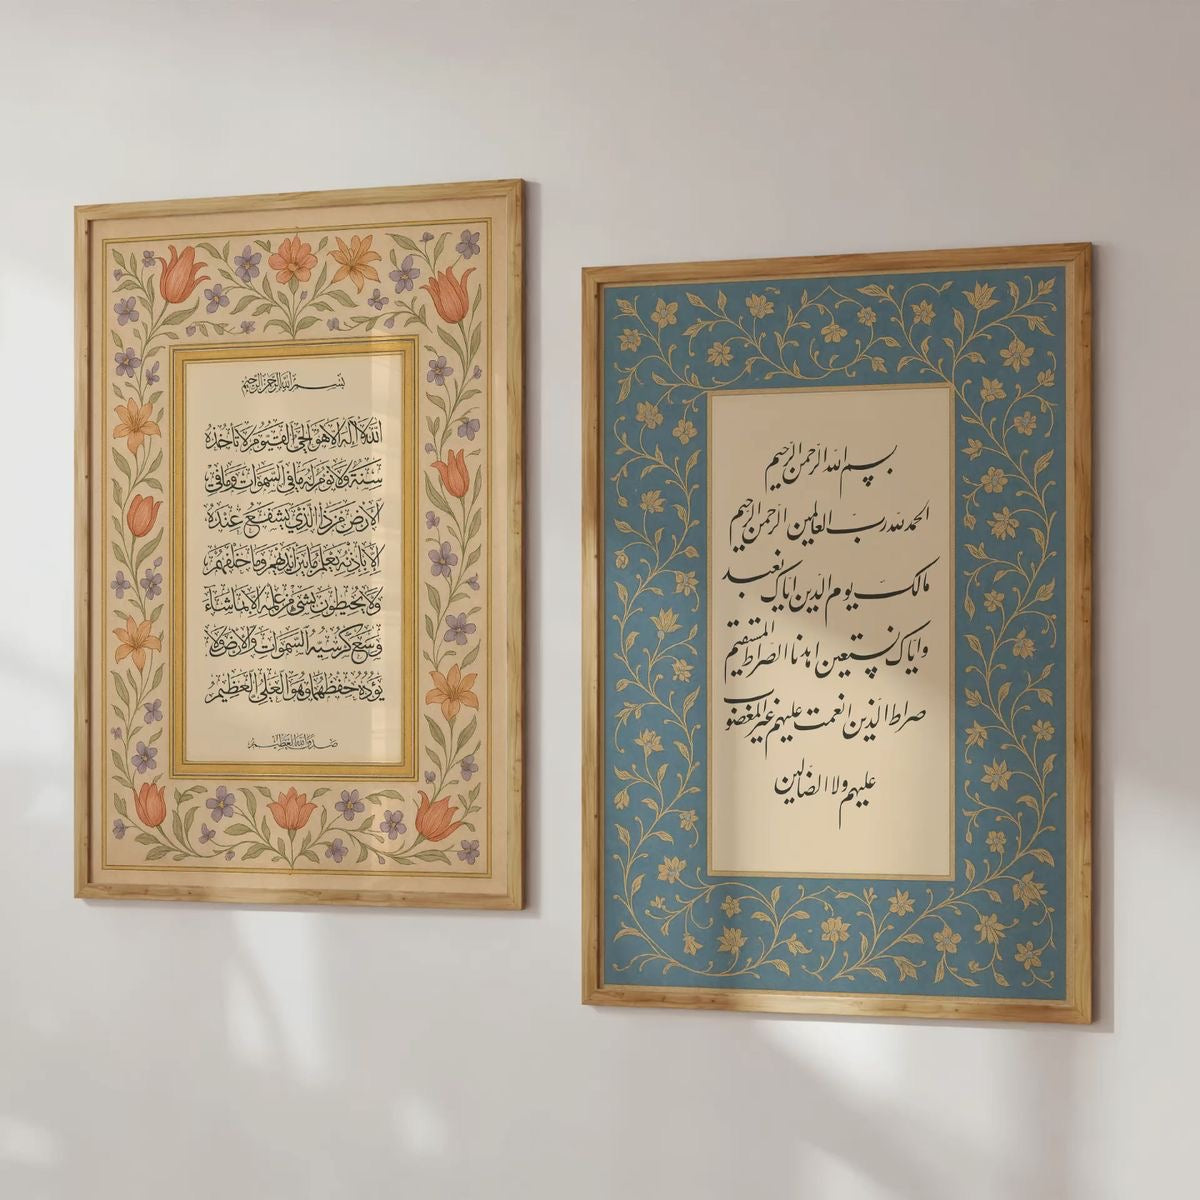 بسم الله الرحمن الرحيم
الله لا اله الا هو الحي القيوم لا تأخذه
سنة ولا نوم له ما في السموات وما في
الارض من ذا الذي يشفع عنده
الا باذنه يعلم ما بين ايديهم وما خلفهم
ولا يحيطون بشئ من علمه الا بما شاء
وسع كرسيه السموات والارض ولا
يؤده حفظهما وهو العلي العظيم
صدق الله العظيم
بسم الله الرحمن الرحيم
الحمد لله رب العالمين الرحمن الرحيم
مالك يوم الدين اياك نعبد
واياك نستعين اهدنا الصراط المستقيم
صراط الذين انعمت عليهم غير المغضوب
عليهم ولا الضالين